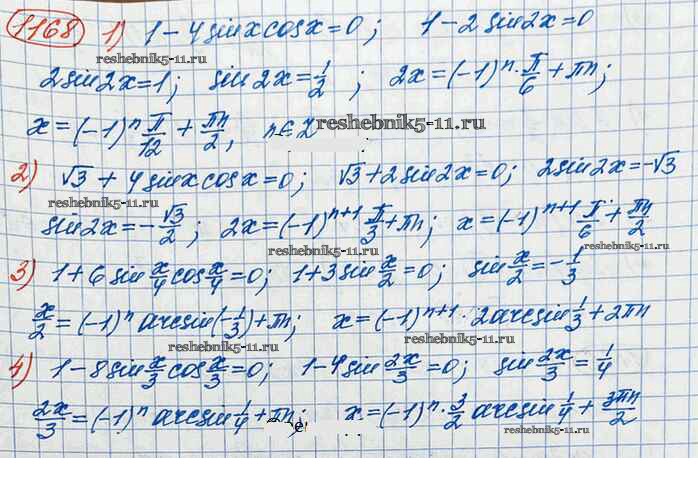 1168 1) 1-4sinxcosx=0; 1-2sin2x=0
reshebnik5-11.ru
2sin2x=1; sin2x=1/2; 2x=(-1)^n·π/6+πn;
x=(-1)^n π/12+πn/2, n∈Z reshebnik5-11.ru
2) √3+4sinxcosx=0; √3+2sin2x=0; 2sin2x=-√3
reshebnik5-11.ru
sin2x=-√3/2; 2x=(-1)^(n+1) π/3+πn; x=(-1)^(n+1) π/6+πn/2
reshebnik5-11.ru
3) 1+6sin x/4 cos x/4=0; 1+3sin x/2=0; sin x/2=-1/3
reshebnik5-11.ru
x/2=(-1)^n arcsin(-1/3)+πn; x=(-1)^(n+1)·2arcsin 1/3+2πn
reshebnik5-11.ru
4) 1-8sin x/3 cos x/3=0; 1-4sin 2x/3=0; sin 2x/3=1/4
2x/3=(-1)^n arcsin 1/4+πn; x=(-1)^n·3/2 arcsin 1/4+3πn/2
reshebnik5-11.ru